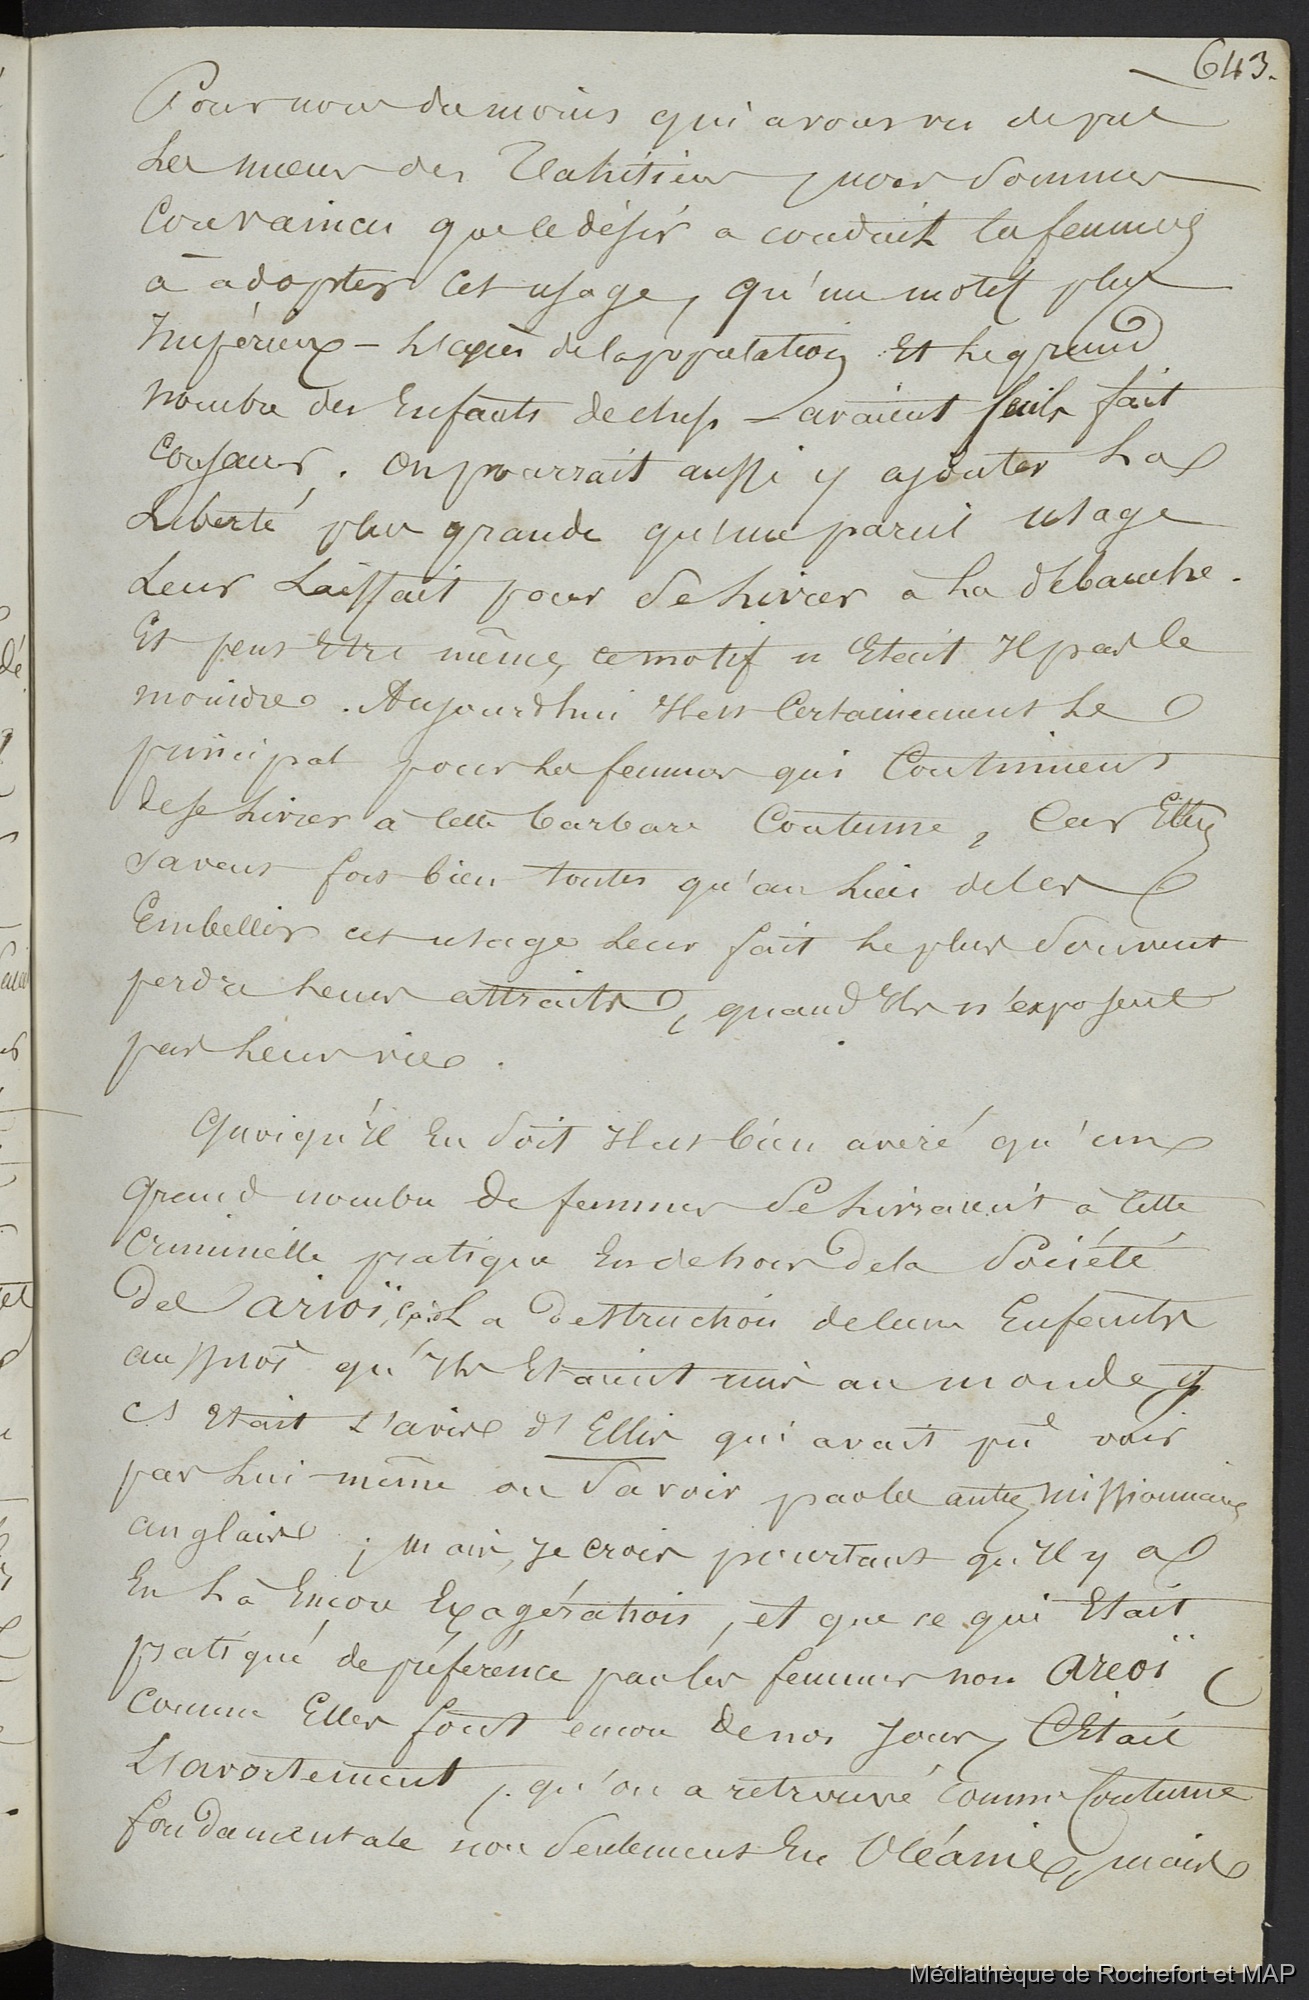 643.
Pour nous du moins qui avons vu de près
les mœurs des Tahitiens, nous sommes
convaincu que le désir a conduit les femmes
à adopter cet usage, qu'un motif plus
impérieux - l'excès de la population et le grand
nombre des enfants de chefs - avaient seuls fait
conserver. On pourrait aussi y ajouter la
liberté plus grande qu'un pareil usage
leur laissait pour se livrer à la débauche.
Et peut être même, ce motif n'était il pas le
moindre. Aujourd'hui il est certainement le
principal pour les femmes qui continuent
de se livrer à cette barbare coutume, car elles
savent fort bien toutes qu'au lieu de les
embellir cet usage leur fait le plus souvent
perdre leurs attraits, quand ils n'exposent
pas leur vie.
Quoiqu'il en soit il est bien avéré qu'un
grand nombre de femmes se livraient à cette
criminelle pratique en dehors de la société
des arioï, la destruction de leurs enfants
aussitôt qu'ils étaient mis au monde
c'était l'avis d'Ellis qui avait pû voir
par lui-même ou savoir par les autres missionnaires
anglais ; mais, je crois pourtant qu'il y a
en là encore exagération, et que ce qui était
pratiqué de préférence par les femmes non areoï
comme elles font encore de nos jours, c'était
l'avortement, qu'on a retrouvé comme coutume
fondamentale non seulement en Océanie, mais
Médiathèque de Rochefort et MAP